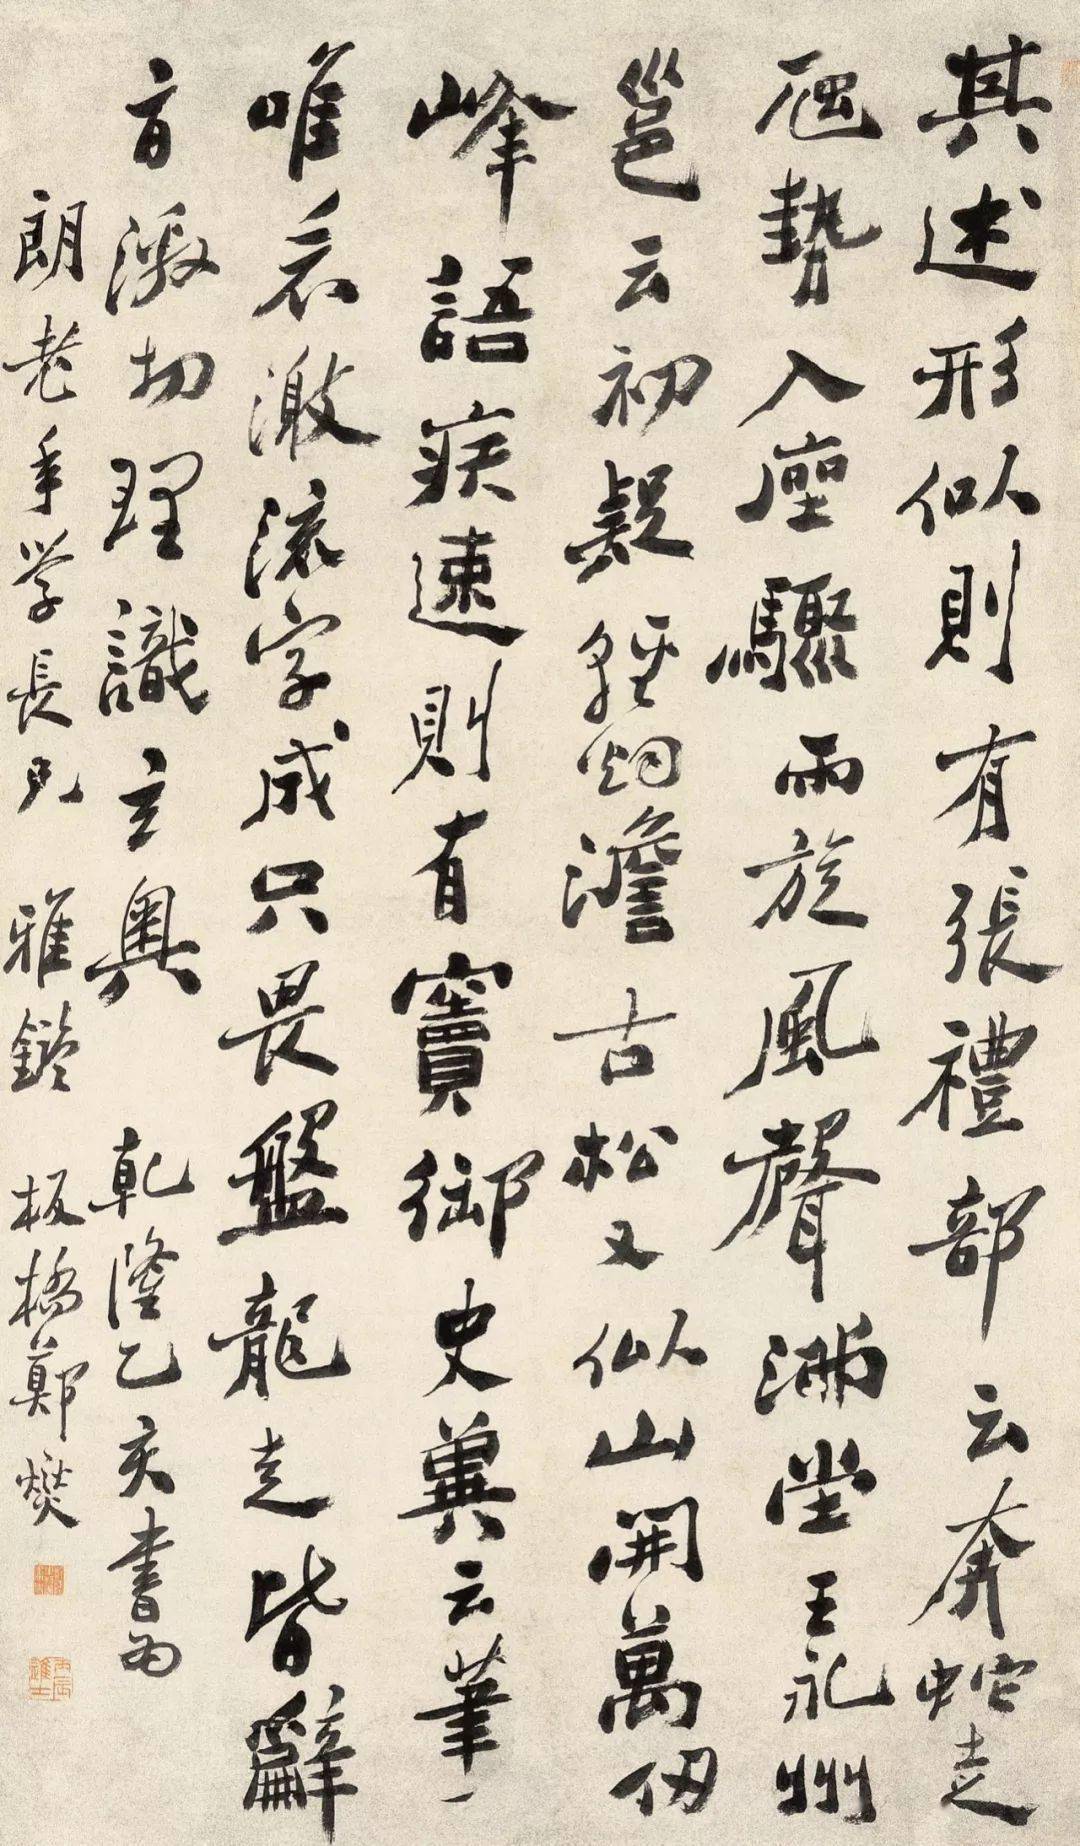 其述形似則有張禮部云奔蛇走
虺勢入座驟雨旋風聲滿堂王永州
邕云初疑輕烟澹古松又似山開萬仞
峰語疾速則有竇御史冀云筆一
唯看激流字成只畏盤龍走皆辭
旨激切理識玄奧 乾隆乙亥書為
朗老年學長兄 雅鑑 板橋鄭燮
丙辰進士